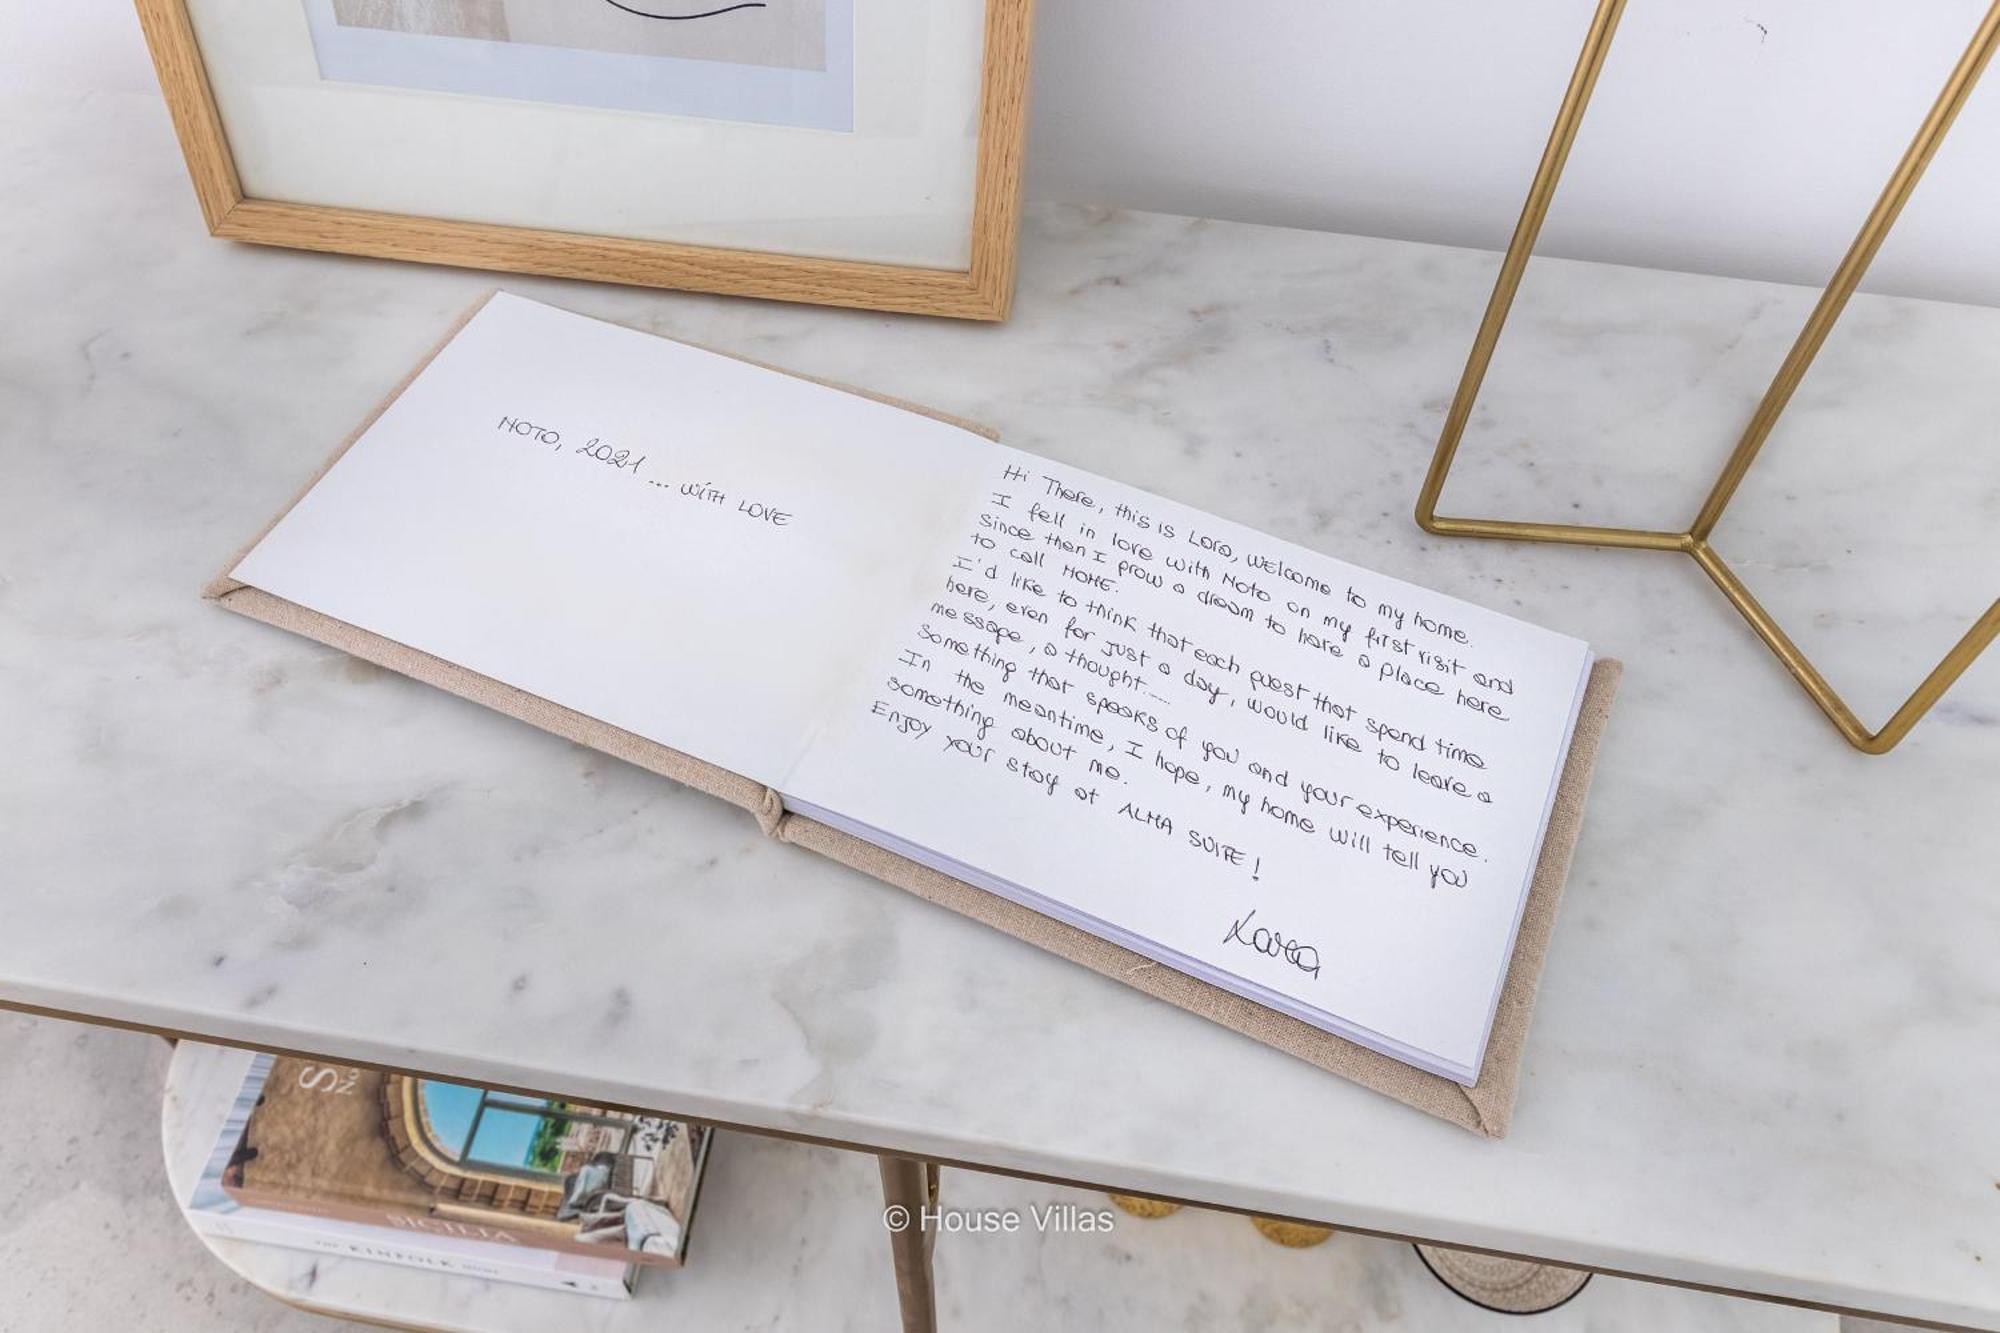 NOTO, 2021 ... WITH LOVE
Hi There, this is Lara, WELcome to my home.
I fell in love with Noto on my first visit and
since then I grow a dream to have a place here
to call HOME.
I'd like to think that each guest that spend time
here, even for just a day, would like to leave a
message, a thought....
something that speaks of you and your experience.
In the meantime, I hope, my home will tell you
something about me.
Enjoy your stay at ALMA SUITE!
Lara
SICILIA
THE KINFOLK HOME
© House Villas